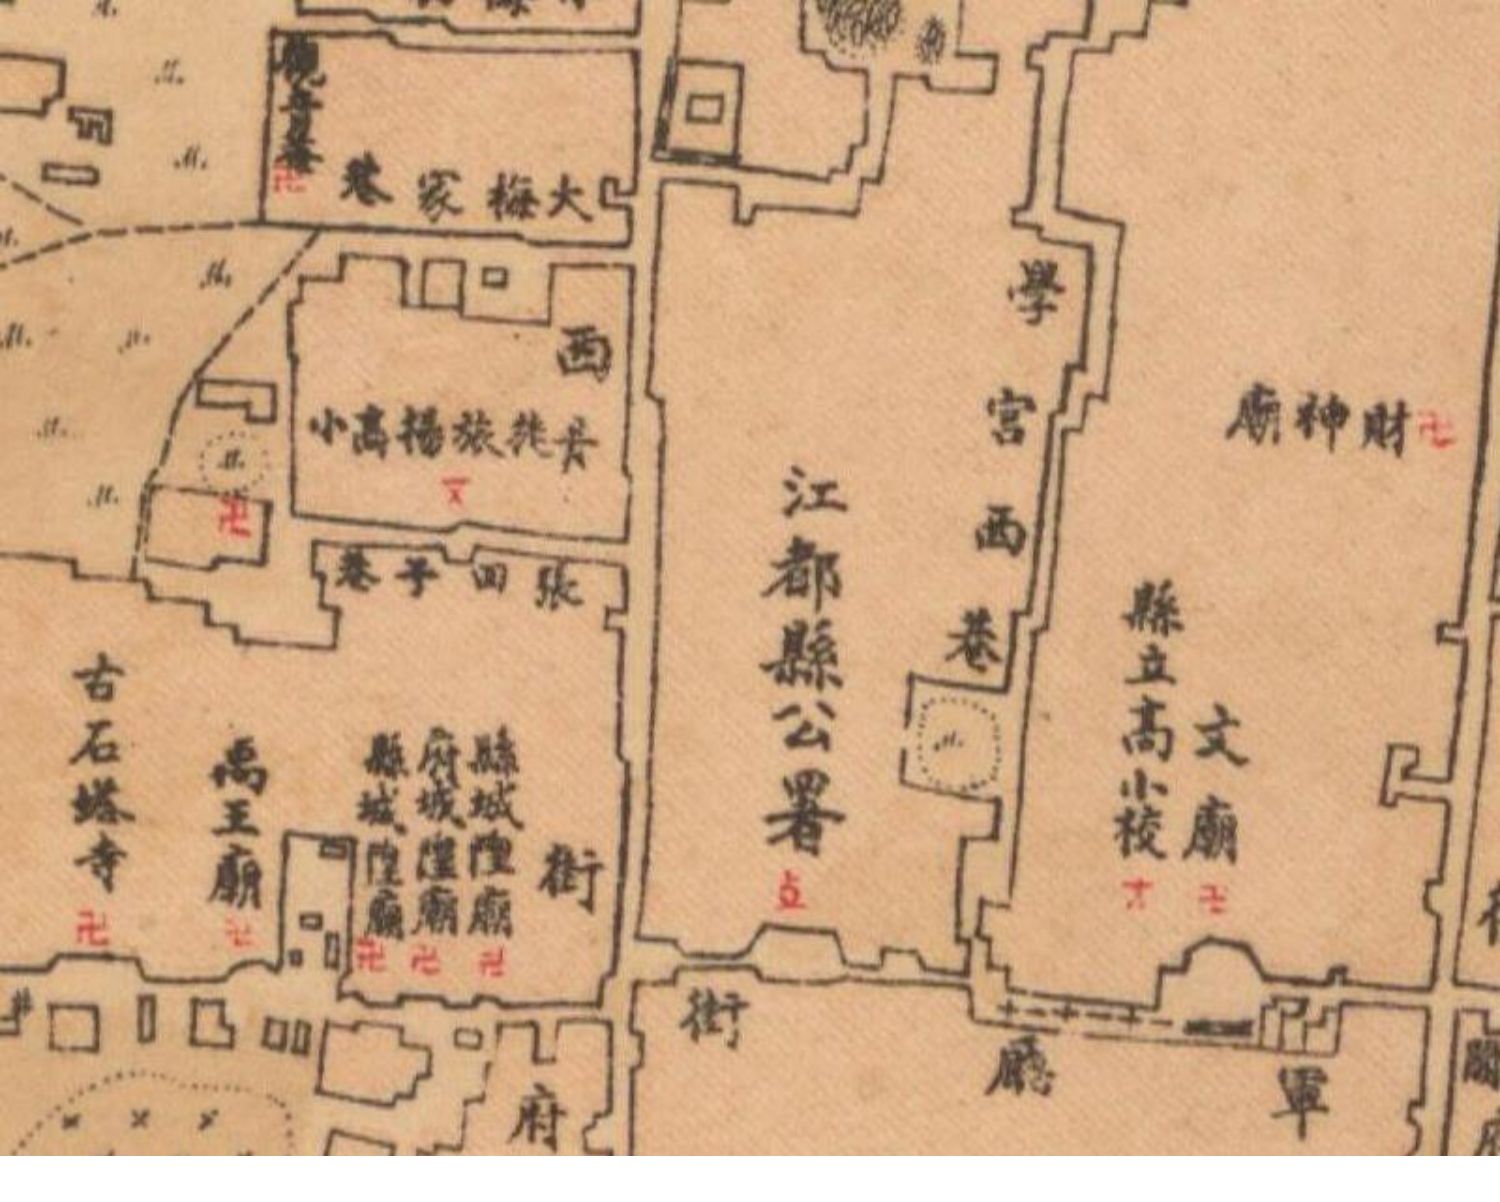 觀音巷
大梅家巷
西
小高揚旅
張回子巷
古石塔寺
禹王廟
縣城隍廟
府城隍廟
縣城隍廟
街
江都縣公署
學宮西巷
財神廟
縣立高小校
文廟
街
軍廳
府